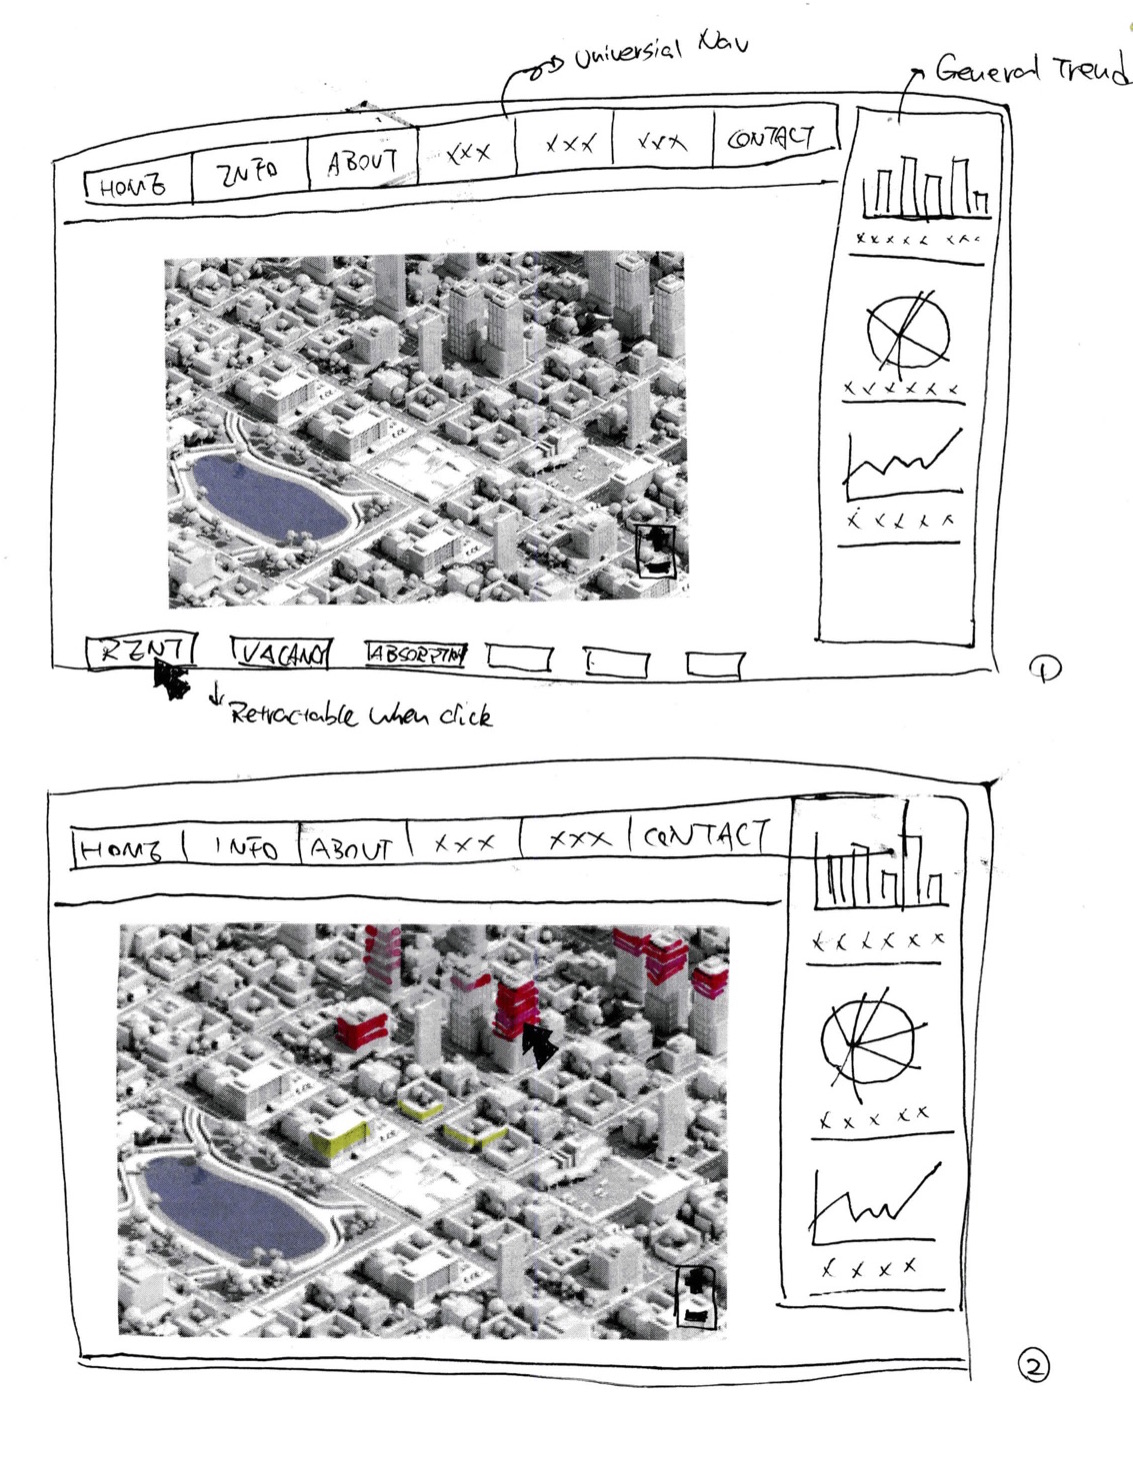 Universial Nav
General Trend
HOME INFO ABOUT XXX XXX XXX CONTACT
xxxxx xxx
xxxxxx
xxxxx
RENT VACANCY ABSORPTION
Retractable when click
1
HOME INFO ABOUT XXX XXX CONTACT
xxxxxx
xxxxx
xxxx
2